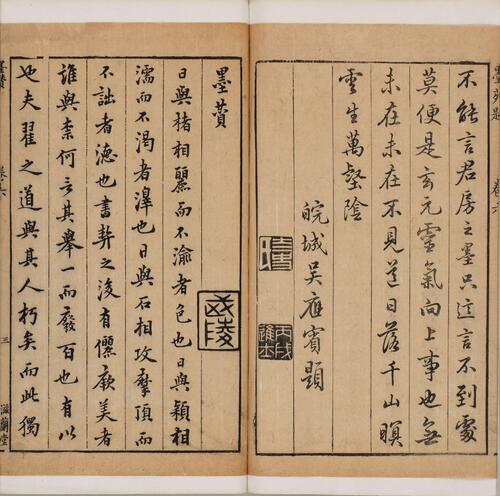 不能言君房之墨只這言不到處
莫便是玄元靈氣向上事也無
未在未在不見道日落千山暝
雲生萬壑陰
皖城吳應賓題
丙戌進士
墨賛
日與楮相麗而不渝者色也日與穎相
濡而不渴者澤也日與石相攻摩頂而
不詘者德也書契之後有儷厥美者
誰與柰何言其舉一而廢百也有以
也夫翟之道與其人朽矣而此獨
三
滋蘭堂